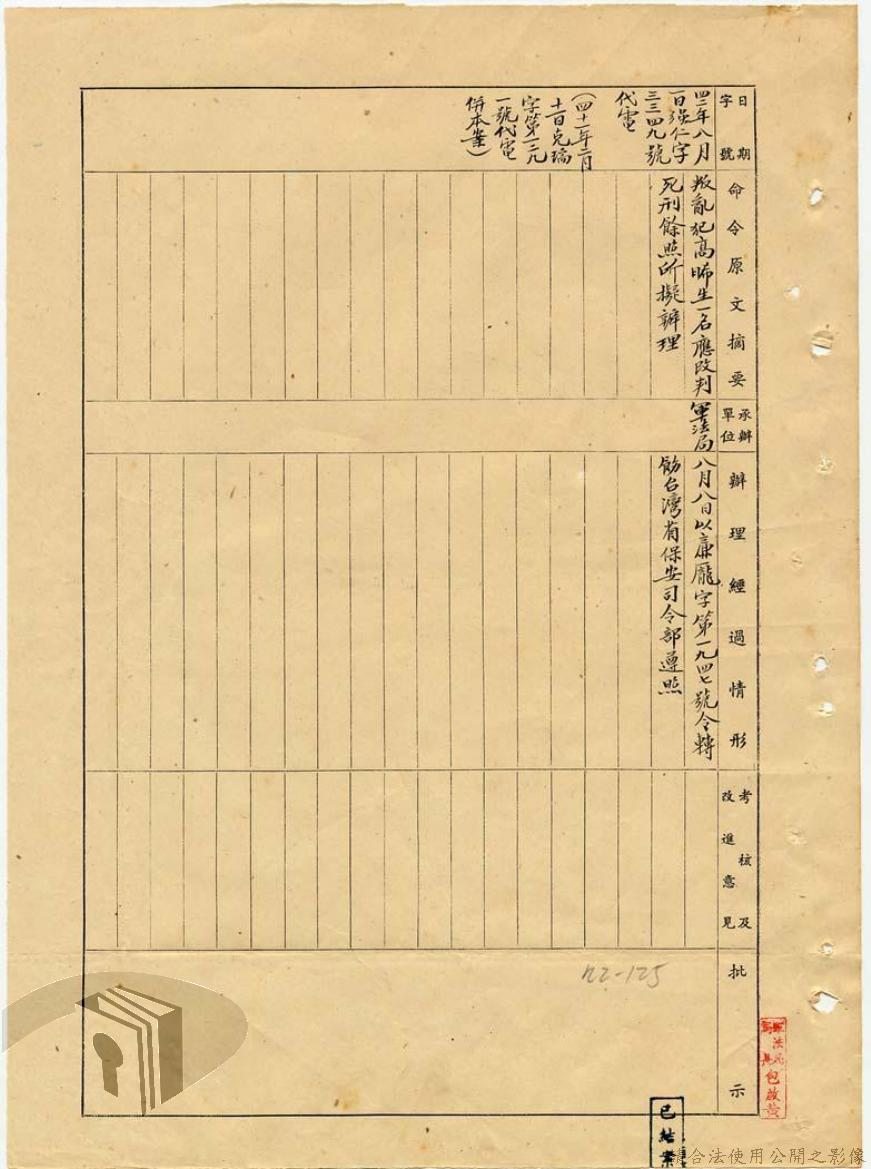 日期
字號
命令原文摘要
承辦
單位
辦理經過情形
考核及
改進意見
批示
四二年八月
一日強仁字
三三四九號
代電
(四十一年二月
十一日克瑞
字第一二九
一號代電
併本案)
叛亂犯高師生一名應改判
死刑餘照所擬辦理
軍法局
八月八日以廉龐字第一九四七號令轉
飭台灣省保安司令部遵照
122-125
包啟黃
已結案
合法使用公開之影像